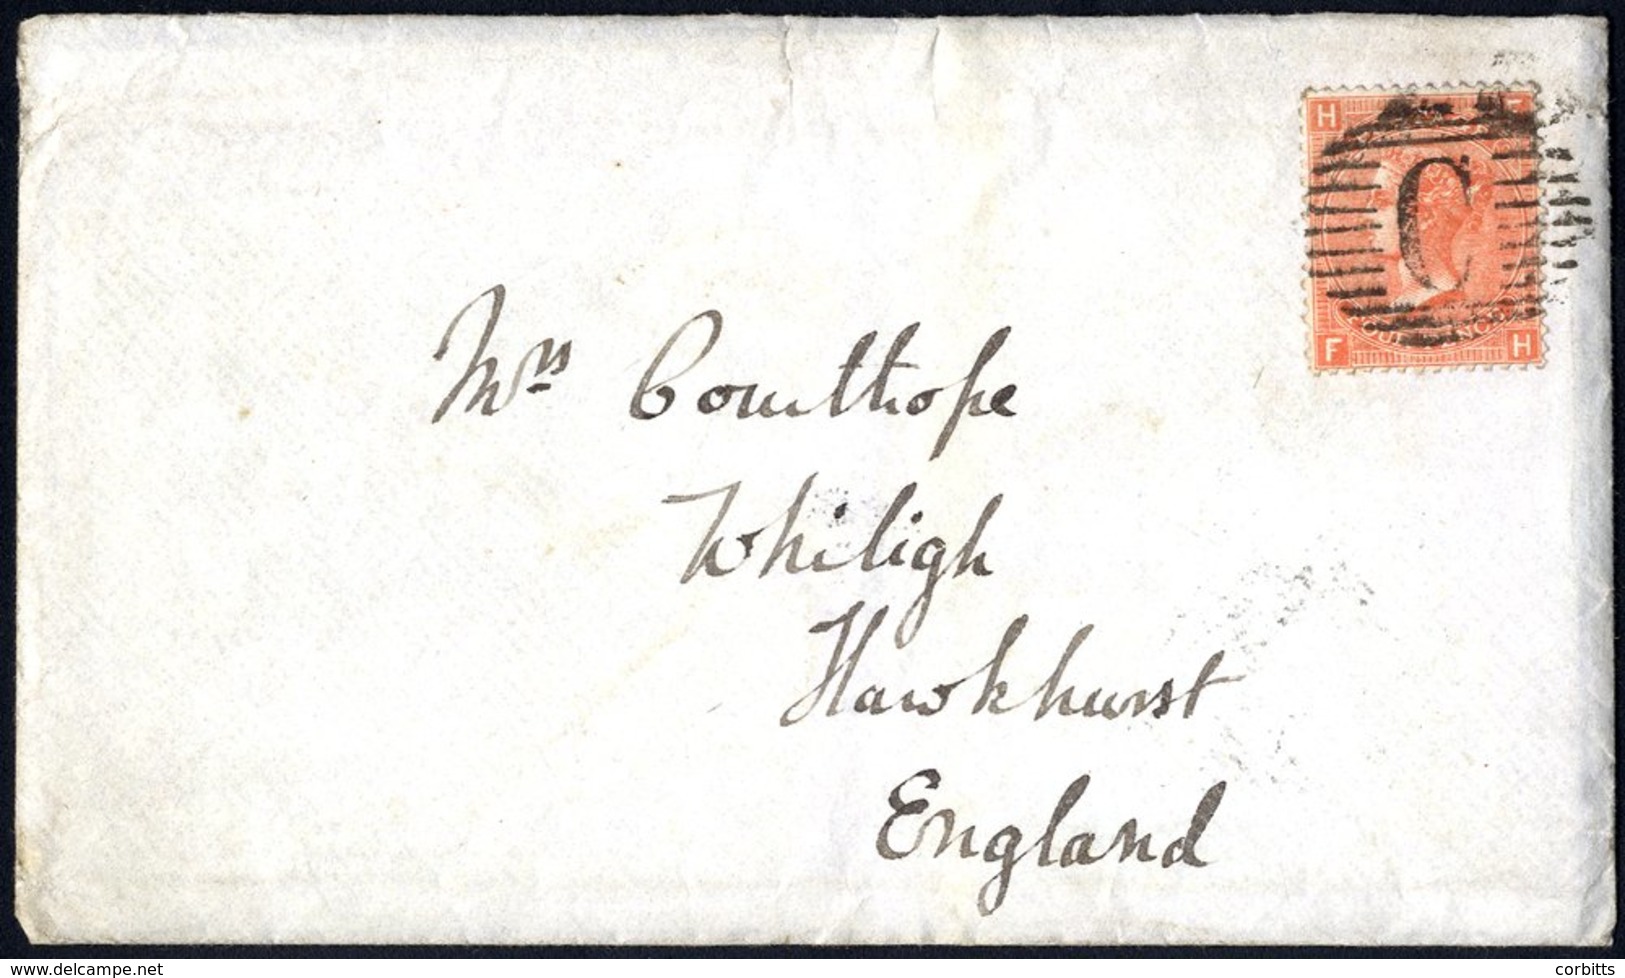 H F
C
FOUR PENCE
F H
Mrs Courthope
Whiligh
Hawkhurst
England
delcampe.net
corbitts